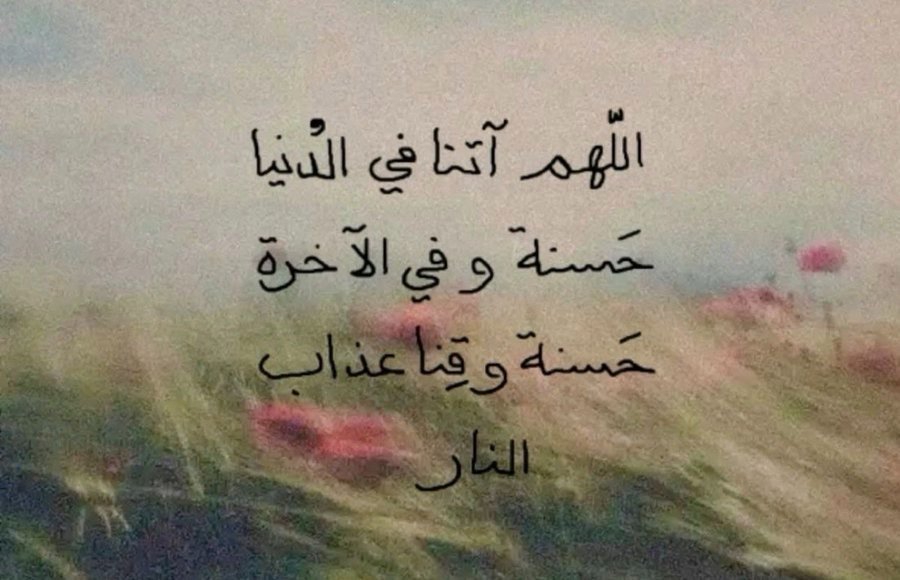 اللّهم آتنا في الدُنيا
حَسنة و في الآخرة
حَسنة و قِنا عذاب
النار